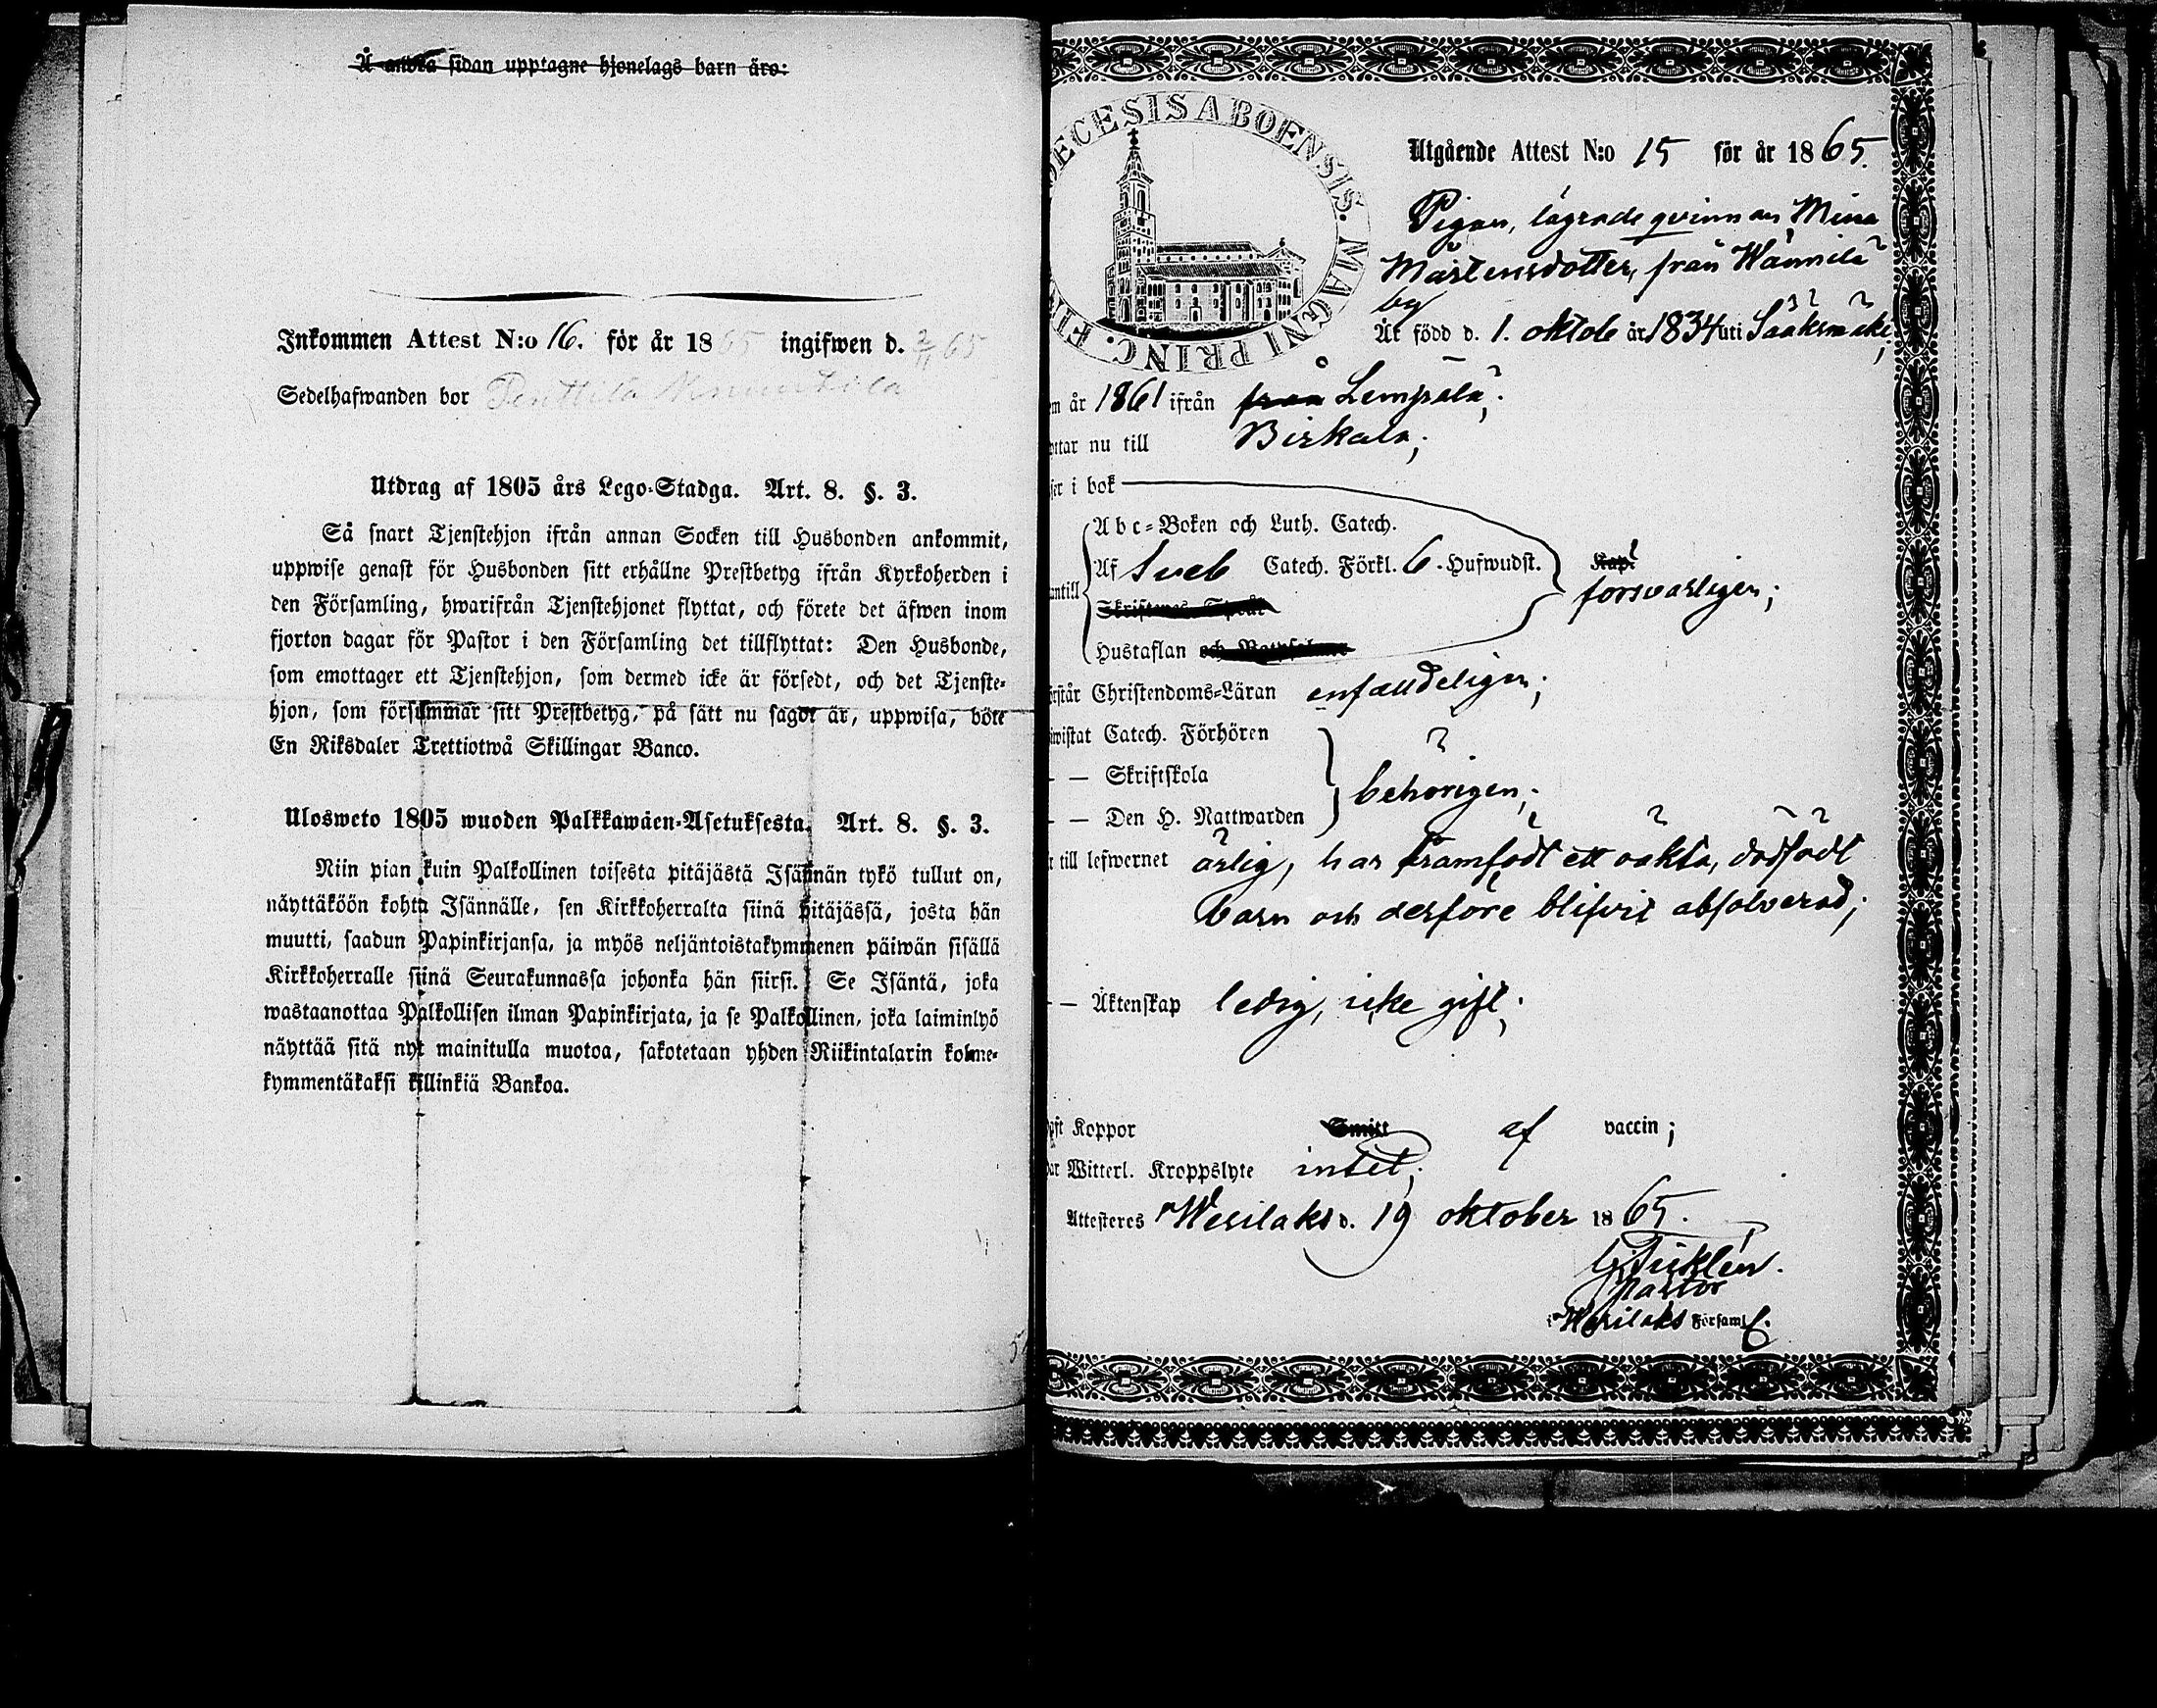 Å andra sidan upptagne hjonelags barn äro:
Inkommen Attest N:o 16. för år 1865 ingifwen d. 2/11 65
Sedelhafwanden bor Penttilä
Utdrag af 1805 års Lego-Stadga. Art. 8. §. 3.
Så snart Tjenstehjon ifrån annan Socken till Husbonden ankommit,
uppwise genast för Husbonden sitt erhållne Prestbetyg ifrån Kyrkoherden i
den Församling, hwarifrån Tjenstehjonet flyttat, och förete det äfwen inom
fjorton dagar för Pastor i den Församling det tillflyttat: Den Husbonde,
som emottager ett Tjenstehjon, som dermed icke är försedt, och det Tjenste-
hjon, som försummar sitt Prestbetyg, på sätt nu sagdt är, uppwisa, böte
En Riksdaler Trettiotwå Skillingar Banco.
Ulosweto 1805 wuoden Palkkawäen-Asetuksesta. Art. 8. §. 3.
Niin pian kuin Palkollinen toisesta pitäjästä Isännän tykö tullut on,
näyttäköön kohta Isännälle, sen Kirkkoherralta siinä pitäjässä, josta hän
muutti, saadun Papinkirjansa, ja myös neljäntoistakymmenen päiwän sisällä
Kirkkoherralle siinä Seurakunnassa johonka hän siirsi. Se Isäntä, joka
wastaanottaa Palkollisen ilman Papinkirjata, ja se Palkollinen, joka laiminlyö
näyttää sitä nyt mainitulla muotoa, sakotetaan yhden Riikintalarin kolme-
kymmentäkaksi killinkiä Bankoa.
ECESIS ABOENSIS. MAGNI PRINC. FI
Utgående Attest N:o 15 för år 1865.
Pigan, lägrade qvinnan, Mina
Mårtensdotter, från Wännilä
by
Är född d. 1. oktob år 1834 uti Sääksmäki;
om år 1861 ifrån från Lempälä;
ttar nu till Birkala;
ser i bok
Abc-Boken och Luth. Catech.
antill Af Sveb Catech. Förkl. 6. Hufwudst. Kap.
försvarligen;
Skriftenes Språk
Hustaflan och
rstår Christendoms-Läran enfalldeligen;
wistat Catech. Förhören
— — Skriftskola behörigen;
— — Den H. Nattwarden
till lefwernet ärlig, har framfödt ett oäkta, dödfödt
barn och derföre blifvit absolverad;
— — Äktenskap ledig, icke gift;
pft Koppor Smitt af vaccin;
ar Witterl. Kroppslyte intet;
Attesteres Wesilaks d. 19 oktober 1865.
Pastor
Wesilaks Församl.